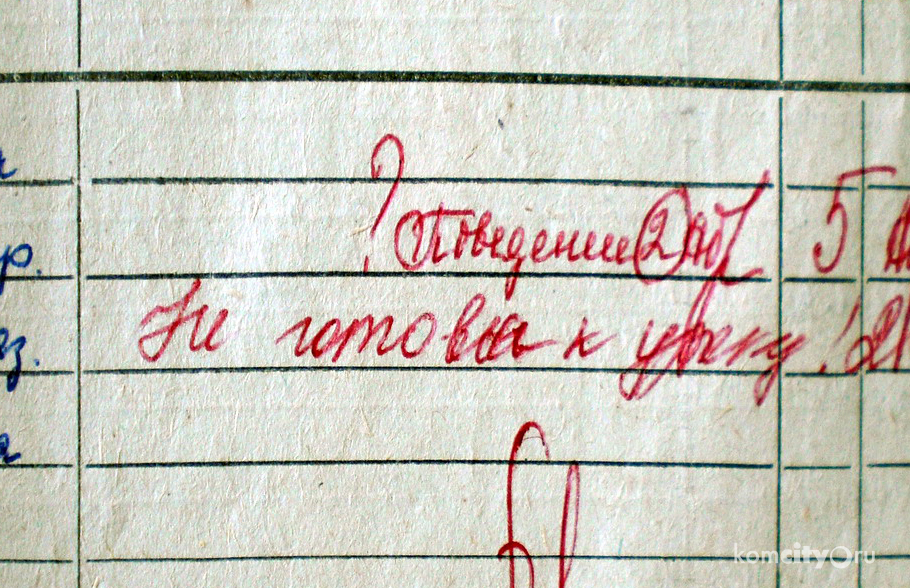 ?
р. Поведение 2 5
з. Не готова к уроку! 2
komcity.ru